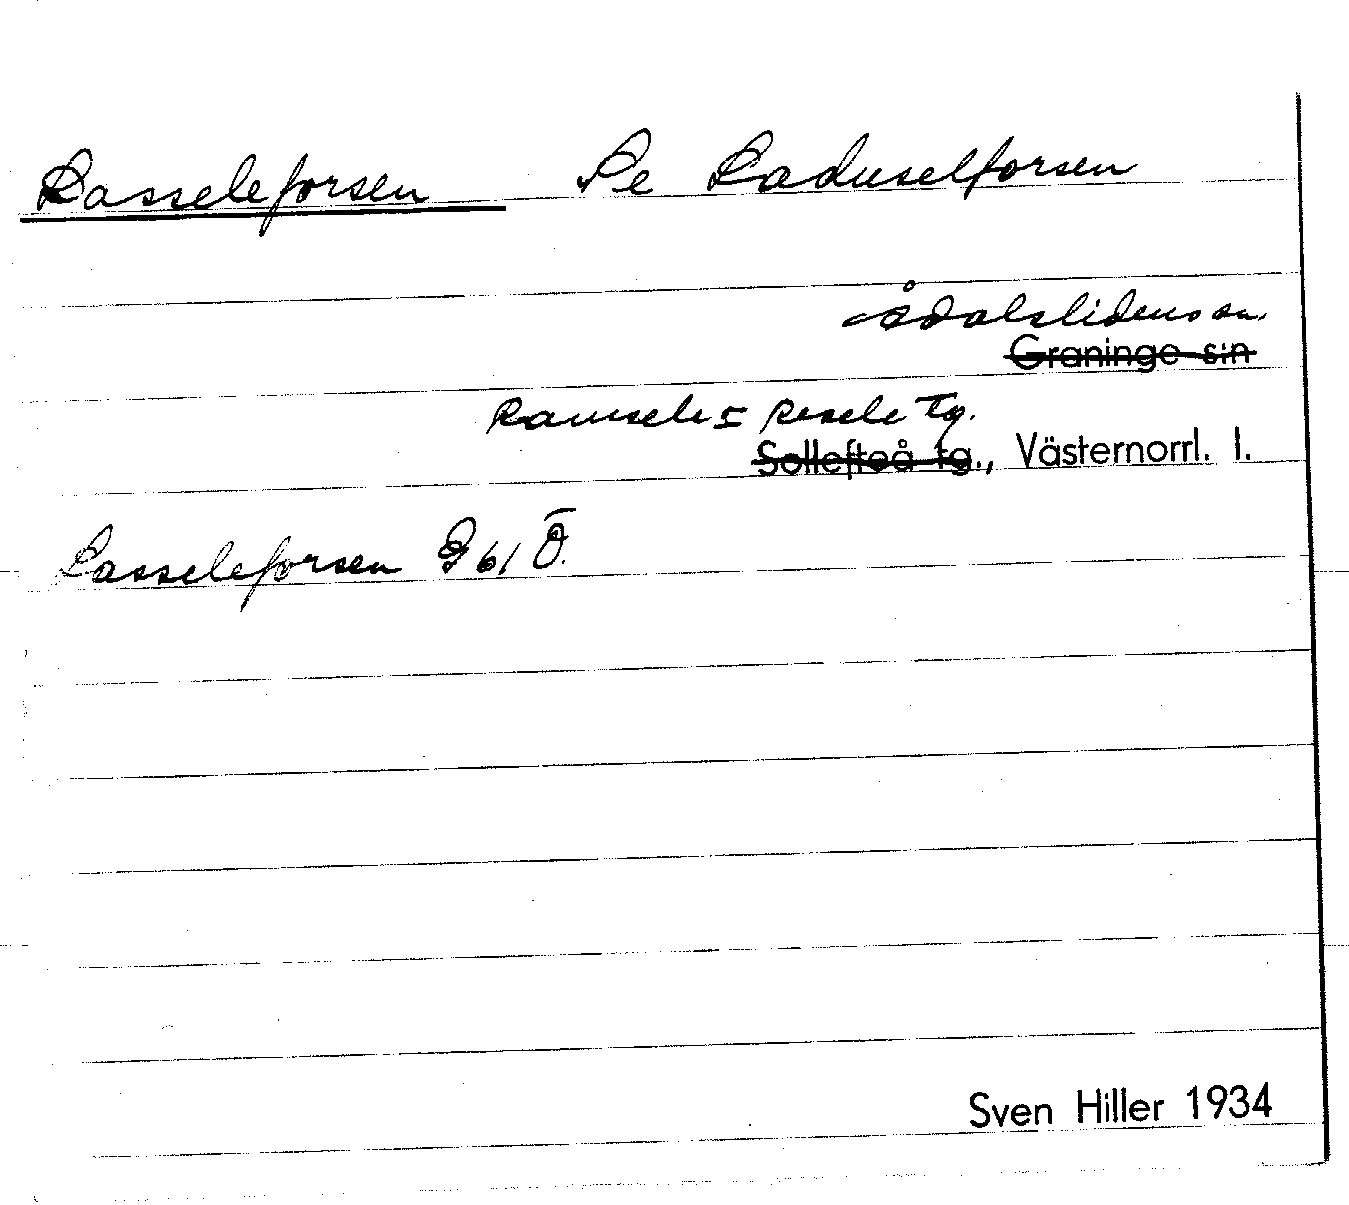 Lasseleforsen Se Laduselforsen
Ådalslidens sn.
Graninge s:n
Ramsele o Resele tg.
Sollefteå tg., Västernorrl. l.
Lasseleforsen G 61 Ö.
Sven Hiller 1934